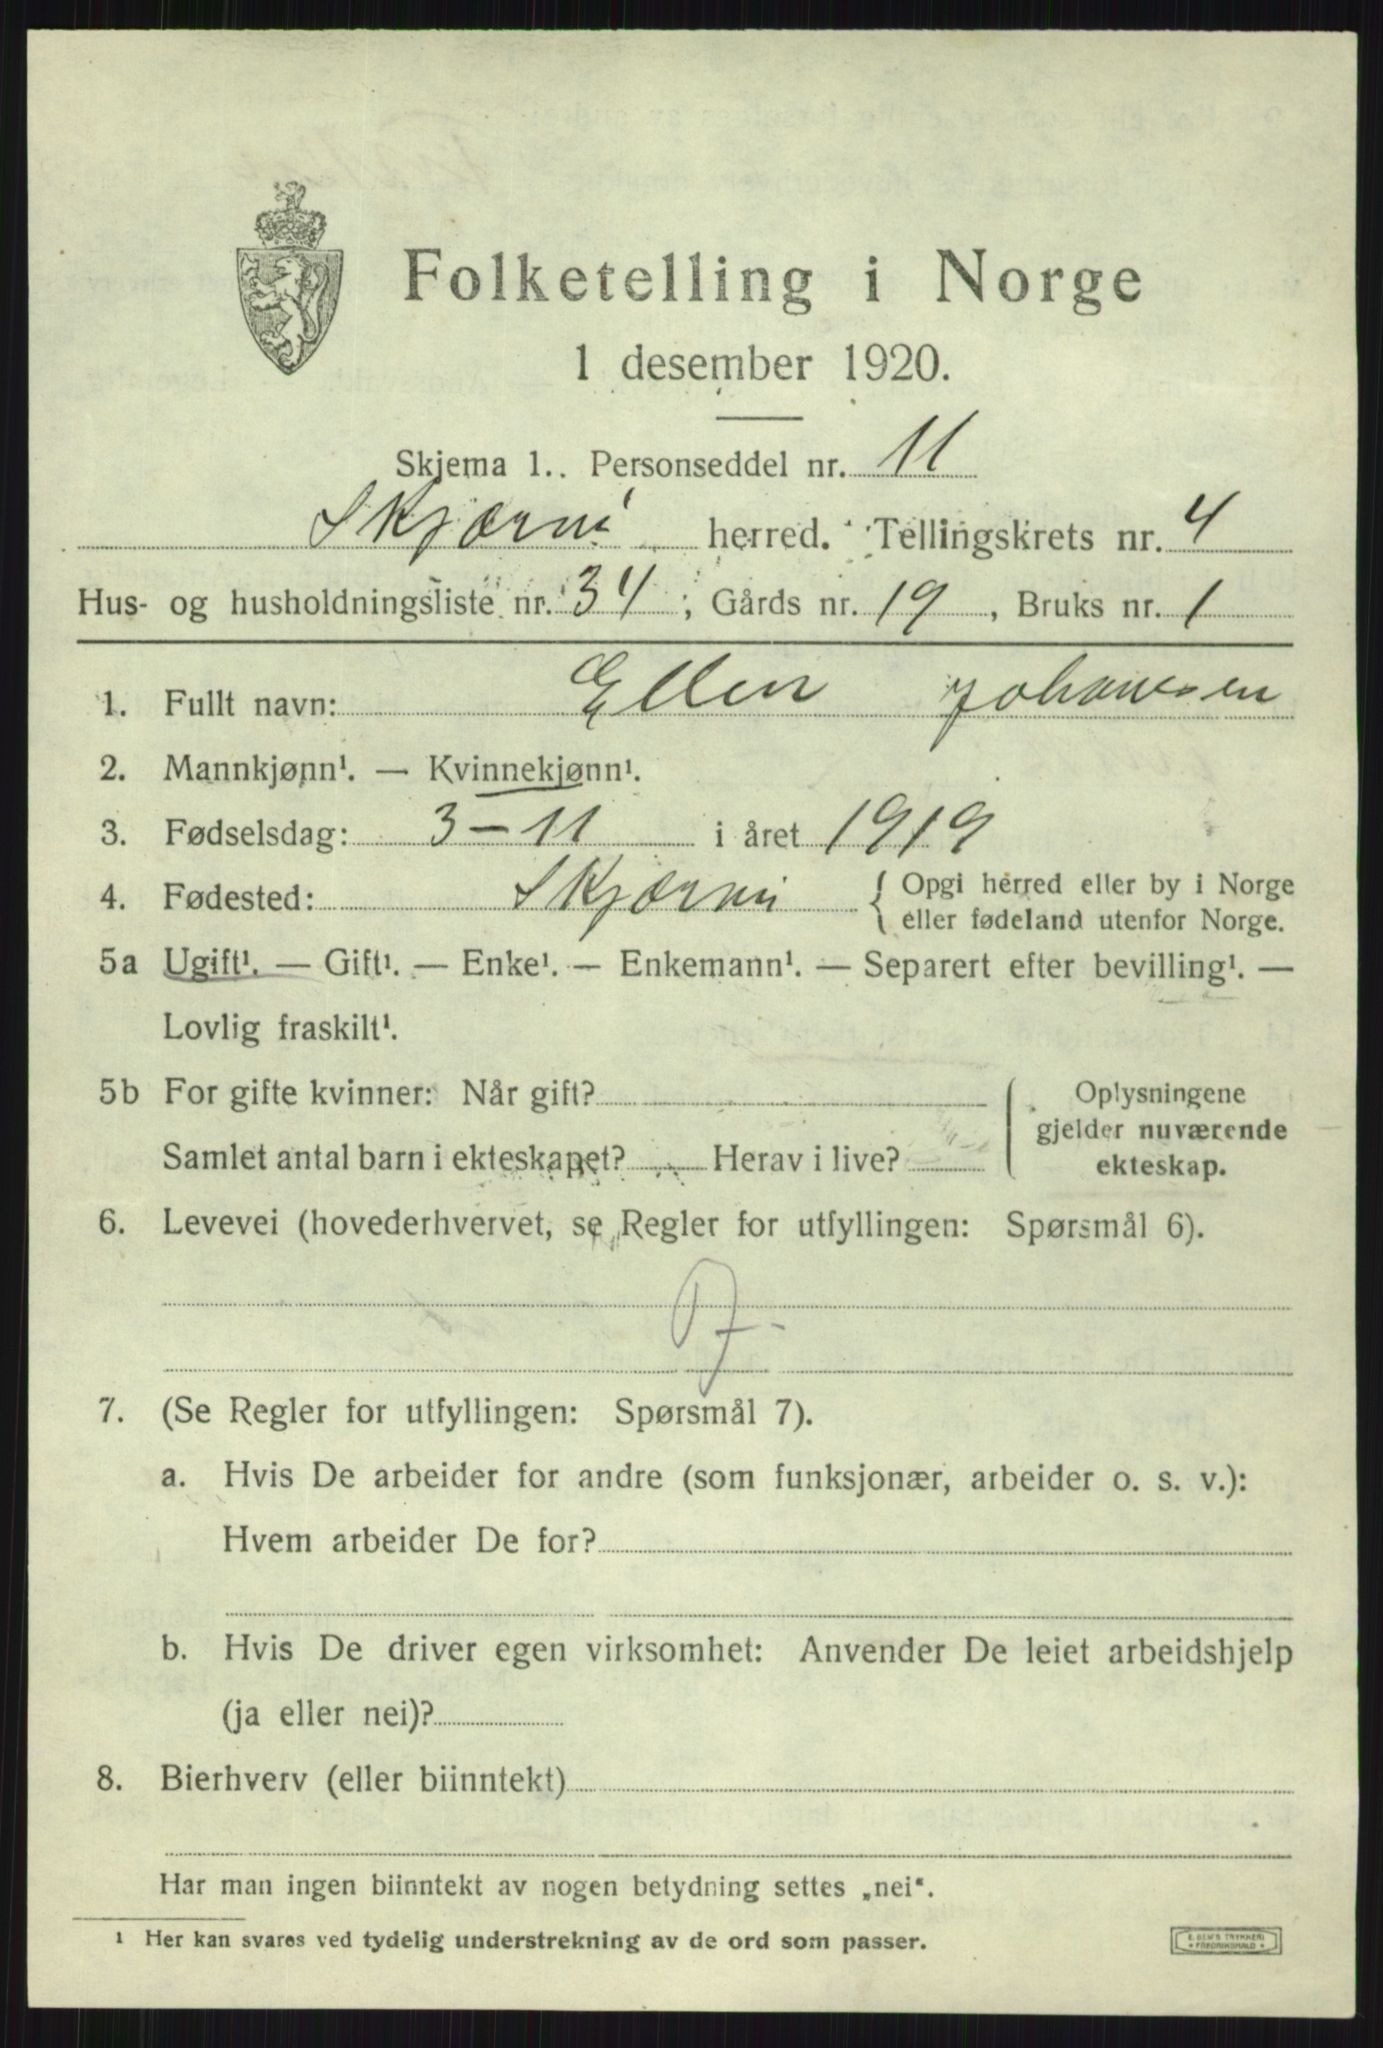 Folketelling i Norge
1 desember 1920.
Skjema 1. Personseddel nr. 11
Skjærvø herred. Tellingskrets nr. 4
Hus- og husholdningsliste nr. 34; Gårds nr. 19, Bruks nr. 1
1. Fullt navn: Ellen Johansen
2. Mannkjønn¹. — Kvinnekjønn¹.
3. Fødselsdag: 3-11 i året 1919
4. Fødested: Skjærvø { Opgi herred eller by i Norge
eller fødeland utenfor Norge.
5a Ugift¹. — Gift¹. — Enke¹. — Enkemann¹. — Separert efter bevilling¹. —
Lovlig fraskilt¹.
5b For gifte kvinner: Når gift?
Samlet antal barn i ekteskapet? Herav i live?
Oplysningene
gjelder nuværende
ekteskap.
6. Levevei (hovederhvervet, se Regler for utfyllingen: Spørsmål 6).
7. (Se Regler for utfyllingen: Spørsmål 7).
a. Hvis De arbeider for andre (som funksjonær, arbeider o. s. v.):
Hvem arbeider De for?
b. Hvis De driver egen virksomhet: Anvender De leiet arbeidshjelp
(ja eller nei)?
8. Bierhverv (eller biinntekt)
Har man ingen biinntekt av nogen betydning settes „nei“.
¹ Her kan svares ved tydelig understrekning av de ord som passer.